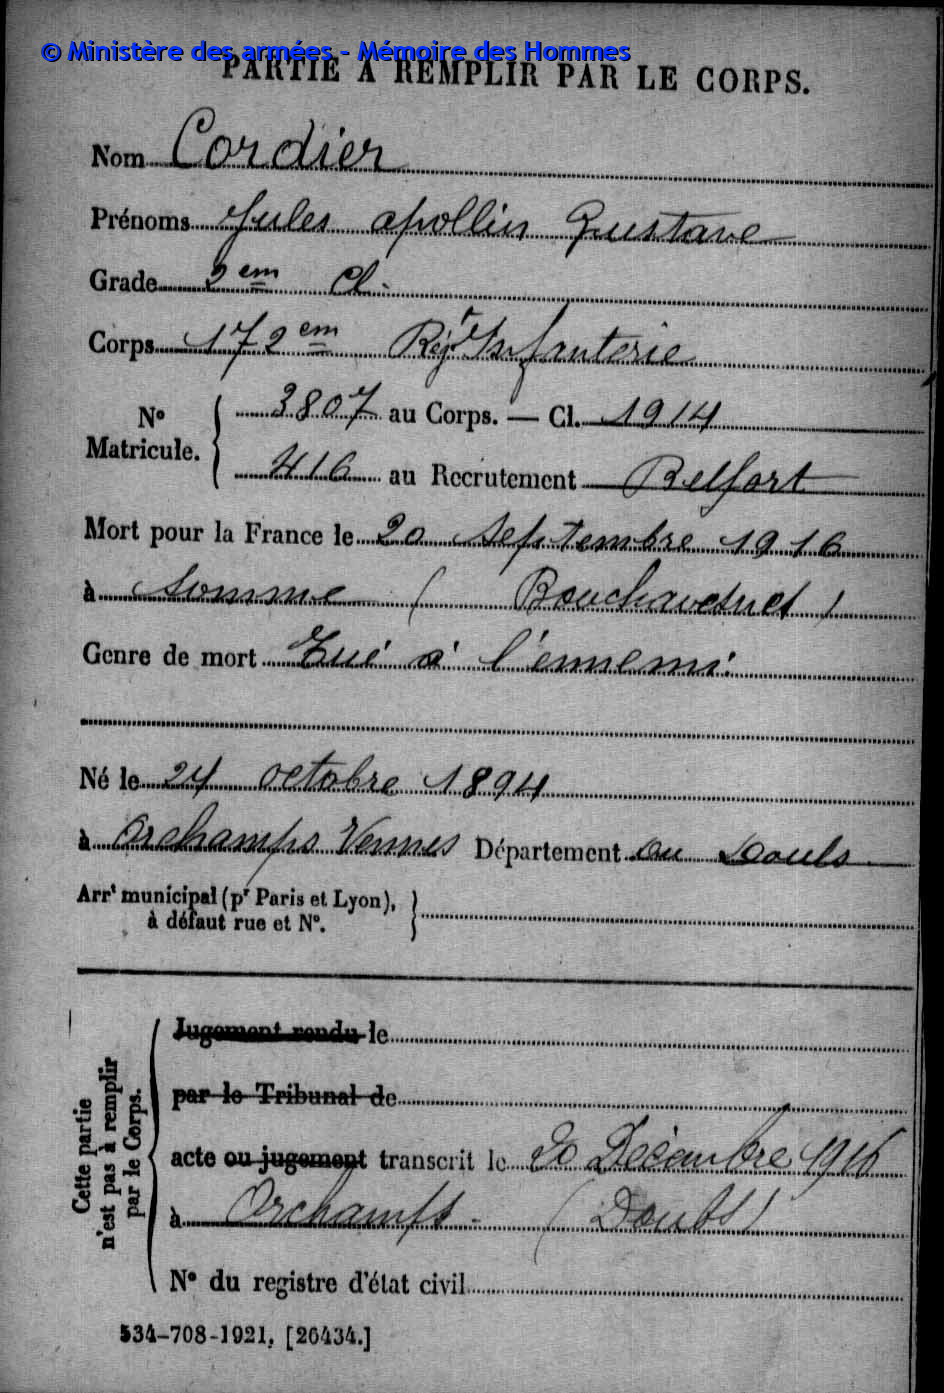 © Ministère des armées - Mémoire des Hommes
PARTIE À REMPLIR PAR LE CORPS.
Nom Cordier
Prénoms Jules Apollin Gustave
Grade 2em Cl.
Corps 172em Régt Infanterie
N° Matricule. { 3807 au Corps. — Cl. 1914
416 au Recrutement Belfort
Mort pour la France le 20 Septembre 1916
à Somme ( Bouchavesnes )
Genre de mort Tué à l'ennemi.
Né le 24 octobre 1894
à Orchamps Vennes Département du Doubs
Arrt municipal (pr Paris et Lyon),
à défaut rue et N°. }
Cette partie
n'est pas à remplir
par le Corps.
Jugement rendu le
par le Tribunal de
acte ou jugement transcrit le 20 Décembre 1916
à Orchamps - (Doubs)
N° du registre d'état civil
534-708-1921. [26434.]